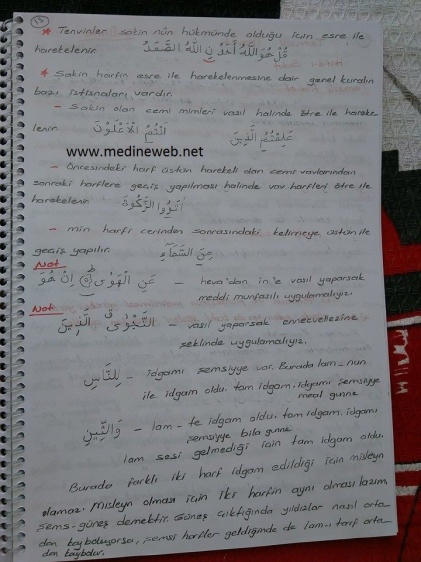 13
* Tenvinler sakin nûn hükmünde olduğu için esre ile
harekelenir. قُلْ هُوَ اللَّهُ أَحَدٌ نِ اللَّهُ الصَّمَدُ
* Sakin harfin esre ile harekelenmesine dair genel kuralın
bazı istisnaları vardır.
- Sakin olan cemi mimleri vasıl halinde ötre ile hareke-
lenir. أَنْتُمُ الْأَعْلَوْنَ عَلِمْتُمُ الَّذِينَ
www.medineweb.net
- Öncesindeki harf üstün harekeli olan cemi vavlarından
sonraki harflere geçiş yapılması halinde vav harfleri ötre ile
harekelenir اٰتَوُا الزَّكٰوةَ
- min harfi cerinden sonrasındaki kelimeye üstün ile
geçiş yapılır. مِنَ السَّمَٓاءِ
Not
عَنِ الْهَوٰى اِنْ هُوَ - heva'dan in'e vasıl yaparsak
meddi munfasılı uygulamalıyız.
Not
النَّجْوٰى الَّذِينَ - vasıl yaparsak ennecvellezine
şeklinde uygulamalıyız.
لِلنَّاسِ - idgamı şemsiyye var. Burada lam-nun
ile idgam oldu. tam idgam, idgamı şemsiyye
meal gunne
وَالتِّينِ - lam-te idgam oldu. tam idgam, idgamı
şemsiyye bila gunne
lam sesi gelmediği için tam idgam oldu.
Burada farklı iki harf idgam edildiği için misleyn
olamaz. Misleyn olması için iki harfin aynı olması lazım
Şems-güneş demektir. Güneş çıktığında yıldızlar nasıl orta-
dan kayboluyorsa, şemsi harfler geldiğinde de lam-ı tarif orta-
dan kaybolur.